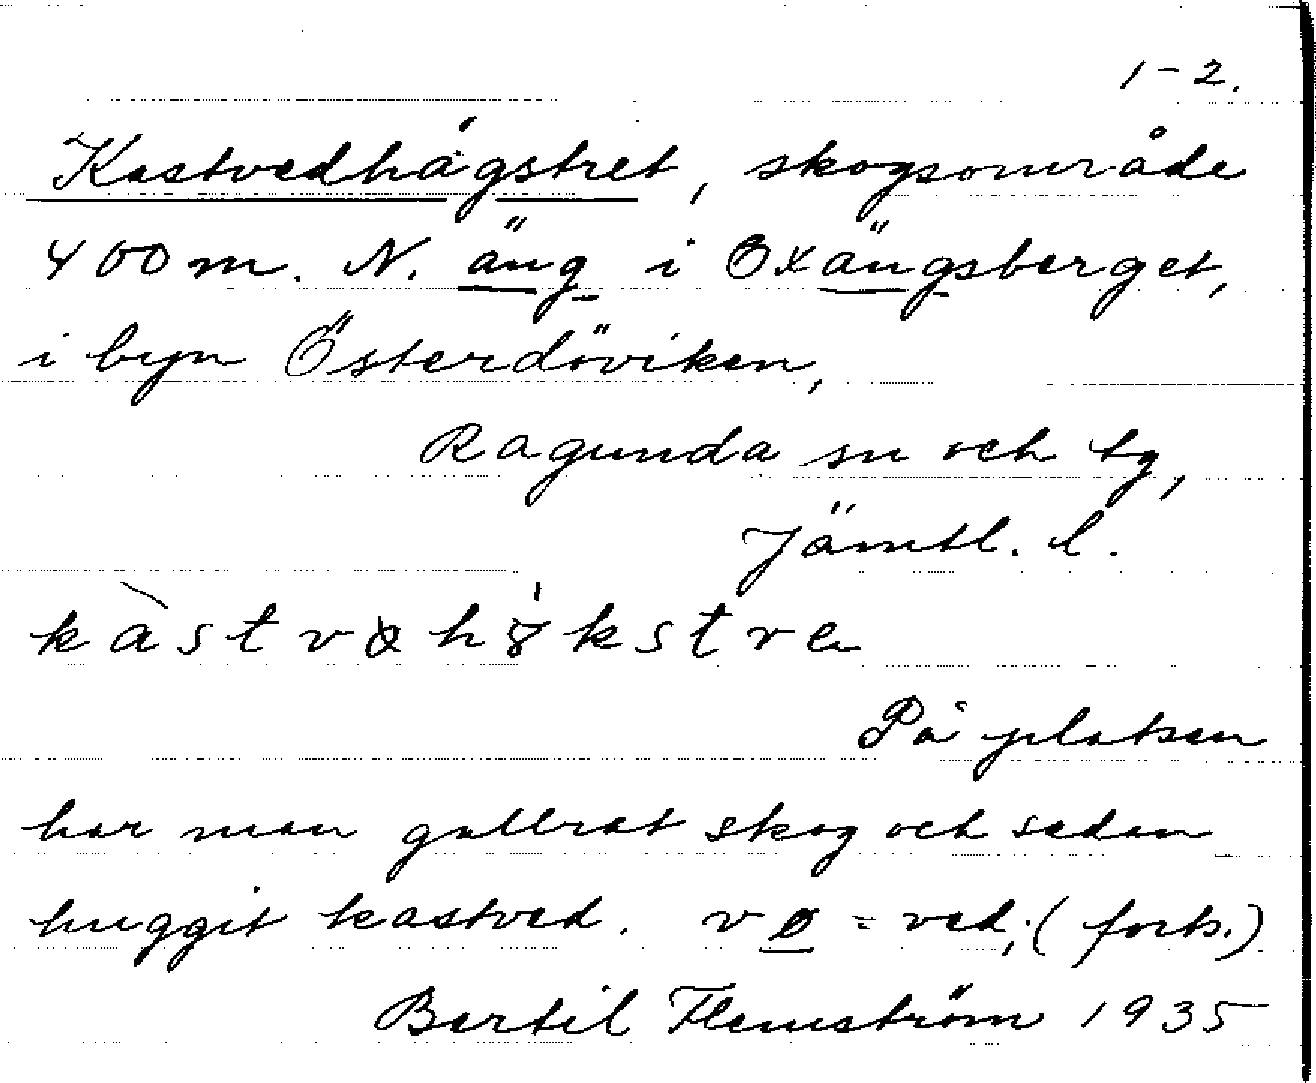 1-2.
Kastvedhägstret, skogsområde
400 m. N. äng i Oxängsberget,
i byn Österdöviken,
Ragunda sn och tg,
Jämtl. l.
På platsen
har man gallrat skog och sedan
huggit kastved. vø = ved; (forts.)
Bertil Flemström 1935